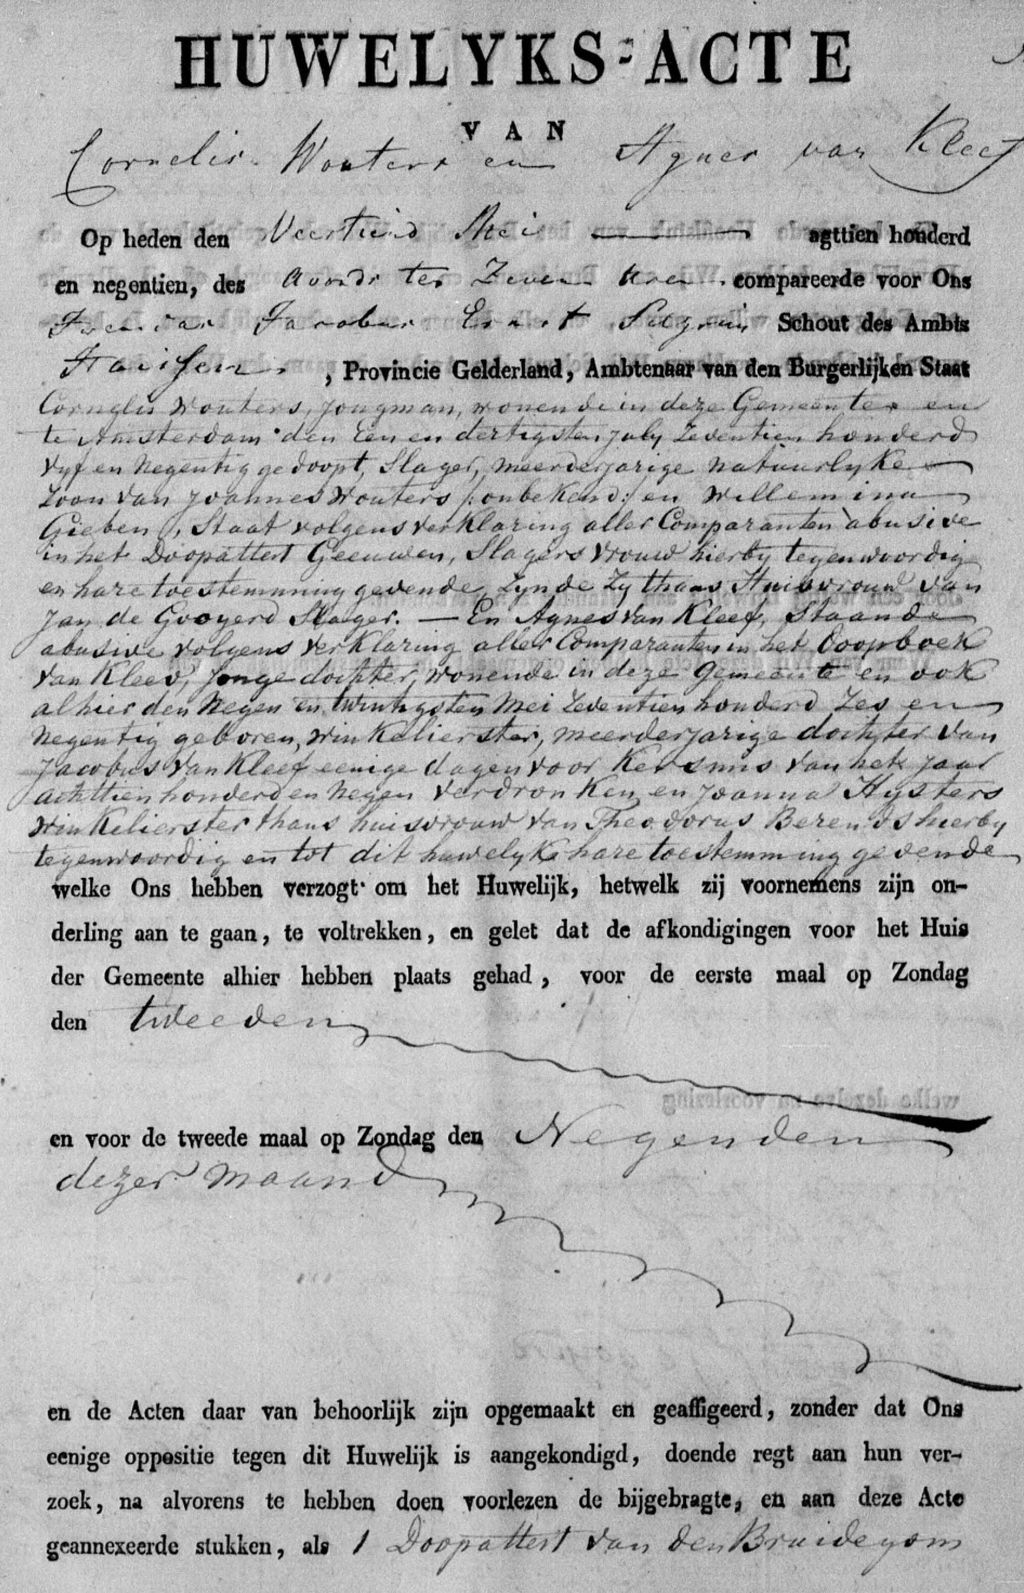 HUWELYKS-ACTE
VAN
Cornelis Wouters en Agnes van Kleef
Op heden den Veertiend Mei agttien honderd
en negentien, des avonds ten Zeven uren compareerde voor Ons
Jacobus Ernst Schout des Ambts
, Provincie Gelderland, Ambtenaar van den Burgerlijken Staat
Cornelis Wouters, jongman, wonende in deze Gemeente en
te Amsterdam den Een en dertigsten july Zeventien honderd
vyf en Negentig gedoopt, Slager, meerderjarige natuurlyke
Zoon van Joannes Wouters /:onbekend:/ en Willemina
Gieben, Staat volgens verklaring aller Comparanten abusive
in het Doopattest Geeuwen, Slagers vrouw hierby tegenwoordig
en hare toestemming gevende, Zynde Zy thans Huisvrouw van
Jan de Gooyerd Slager. — En Agnes van Kleef, Staande
abusive volgens verklaring aller Comparanten in het Doopboek
van Kleev, Jonge dochter, wonende in deze Gemeente en ook
alhier den Negen en twintigsten Mei Zeventien honderd Zes en
Negentig geboren, winkelierster, meerderjarige dochter van
Jacobus van Kleef eenige dagen voor Kersmis van het jaar
achttien honderd en Negen verdronken en Joanna Hysters
winkelierster thans huisvrouw van Theodorus Berends hierby
tegenwoordig en tot dit huwelyk hare toestemming gevende
welke Ons hebben verzogt om het Huwelijk, hetwelk zij voornemens zijn on-
derling aan te gaan, te voltrekken, en gelet dat de afkondigingen voor het Huis
der Gemeente alhier hebben plaats gehad, voor de eerste maal op Zondag
den tweeden
en voor de tweede maal op Zondag den Negenden
dezer maand
en de Acten daar van behoorlijk zijn opgemaakt en geaffigeerd, zonder dat Ons
eenige oppositie tegen dit Huwelijk is aangekondigd, doende regt aan hun ver-
zoek, na alvorens te hebben doen voorlezen de bijgebragte, en aan deze Acte
geannexeerde stukken, als 1 Doopattest van den Bruidegom